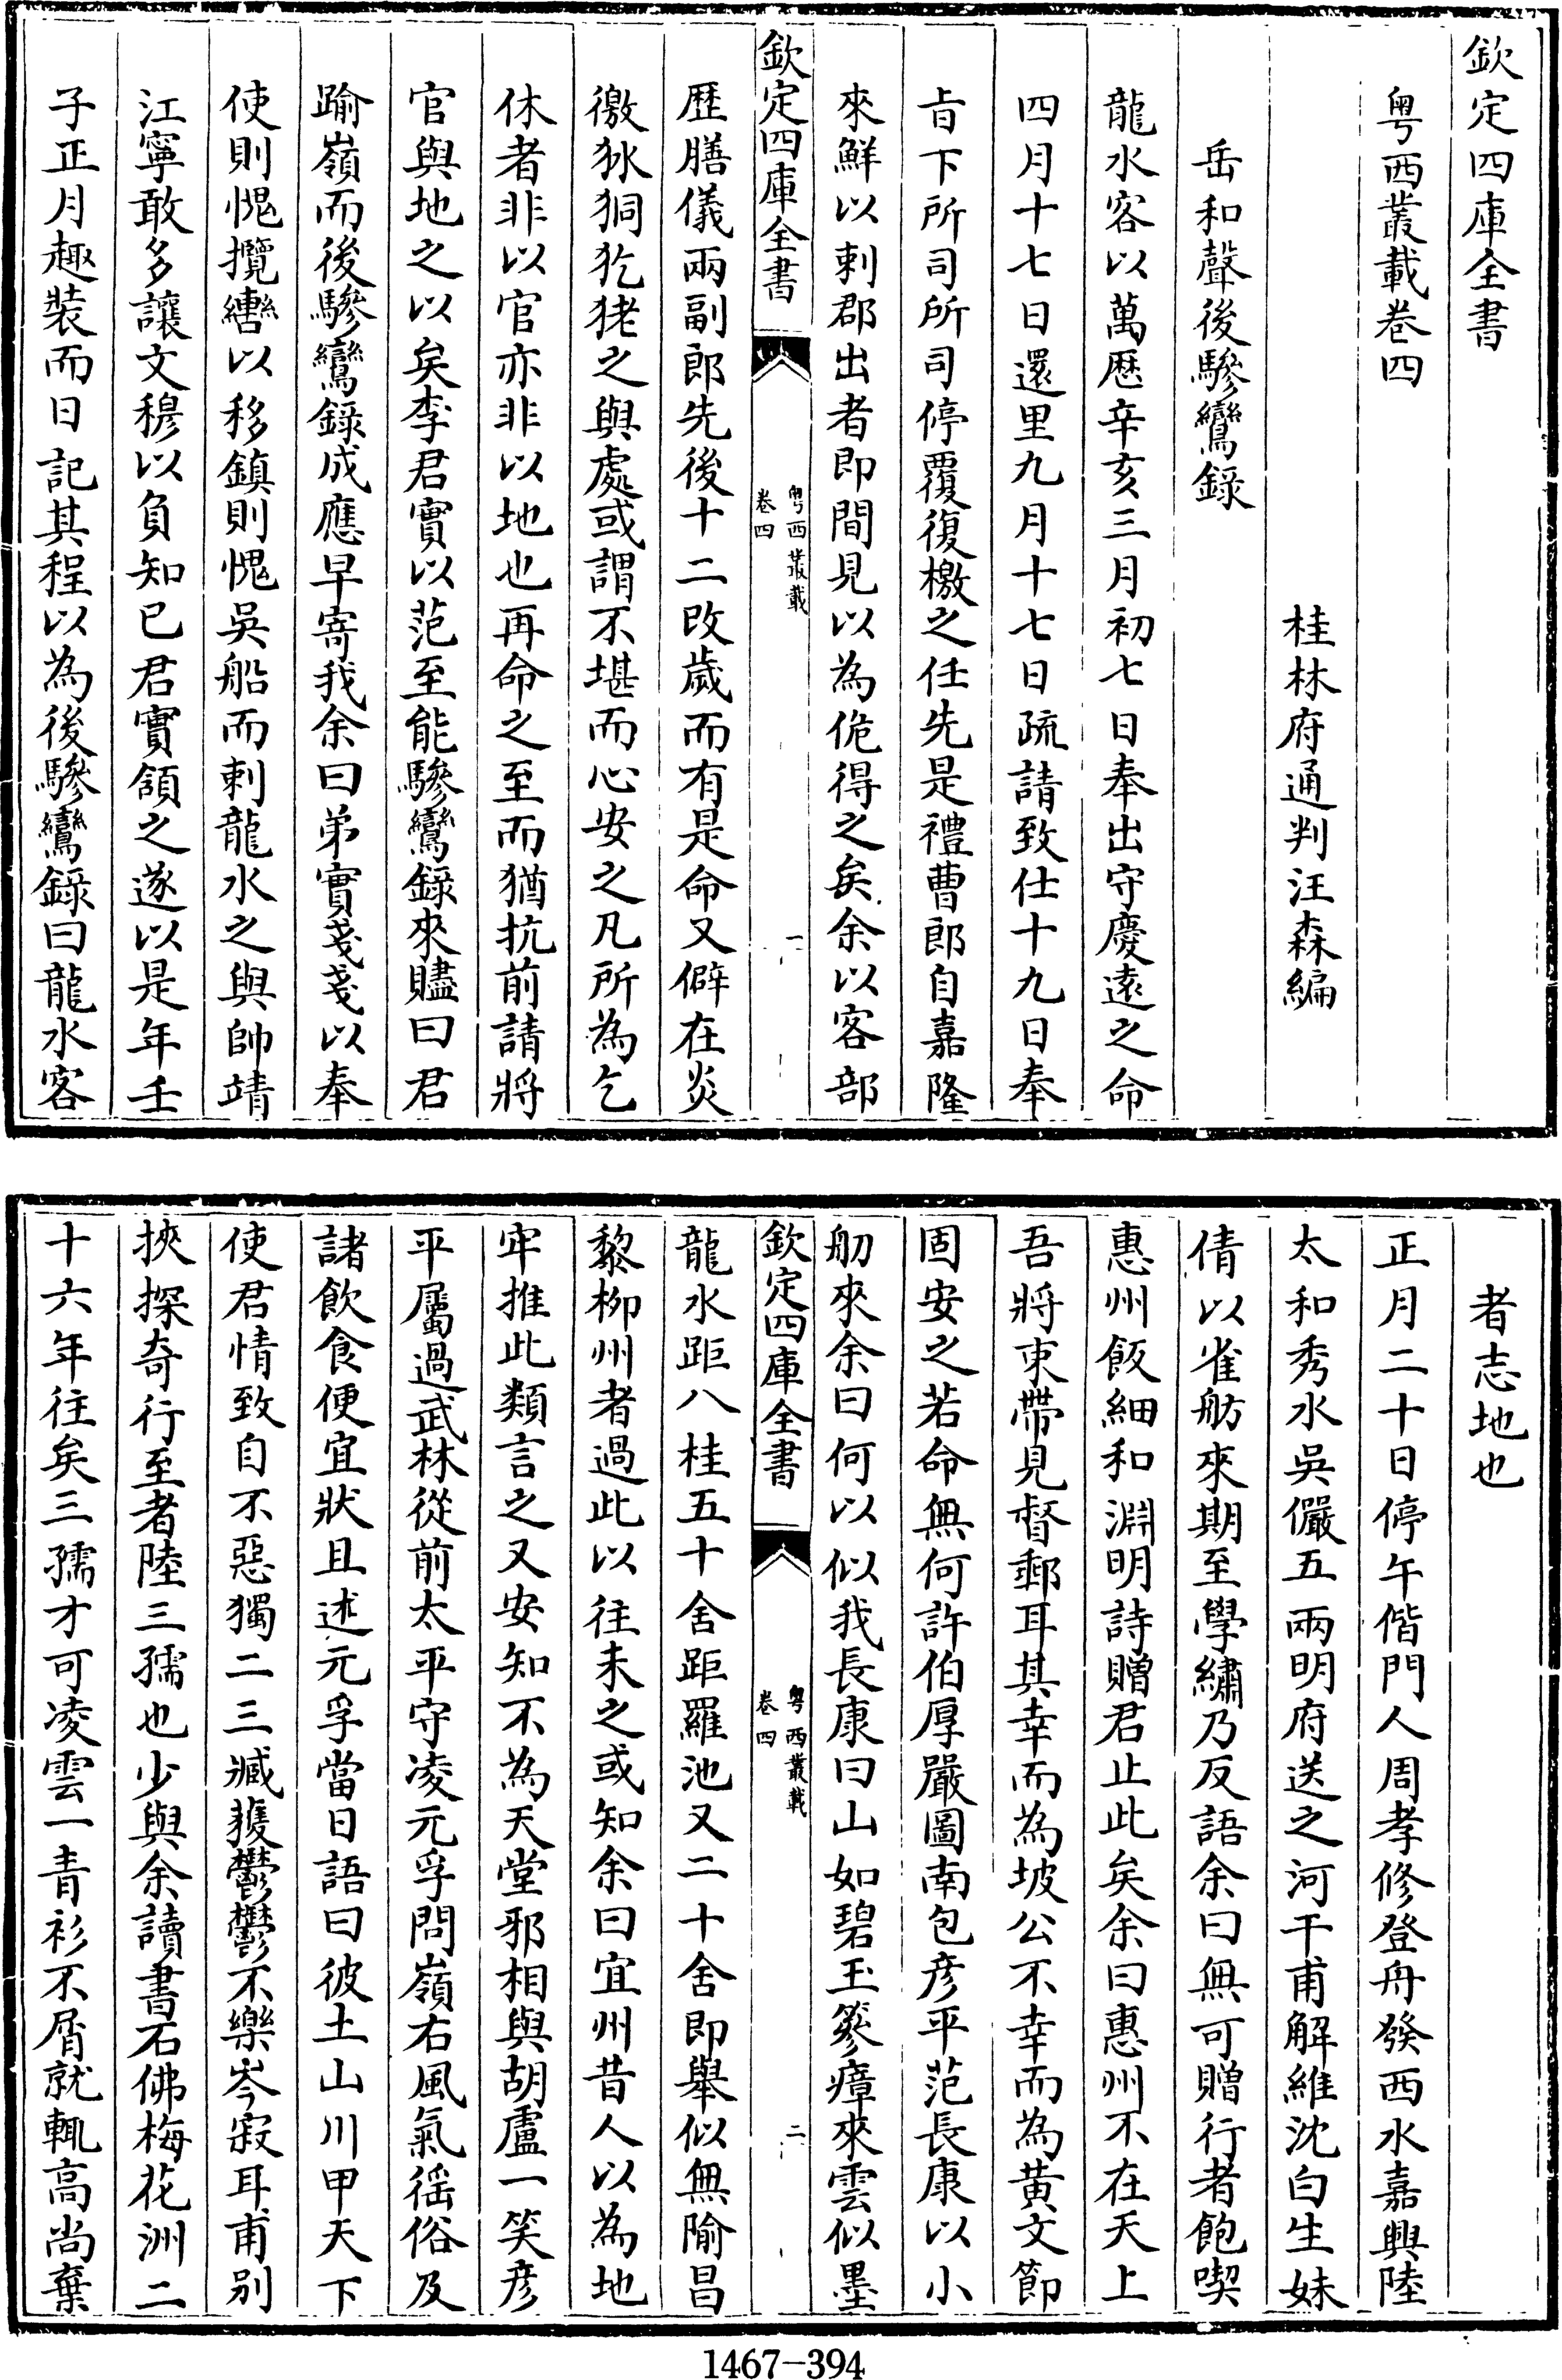 欽定四庫全書
粵西叢載卷四
桂林府通判汪森編
岳和聲後驂鸞錄
龍水客以萬歷辛亥三月初七日奉出守慶遠之命
四月十七日還里九月十七日疏請致仕十九日奉
旨下所司所司停覆復檄之任先是禮曹郎自嘉隆
來鮮以刺郡出者即間見以為佹得之矣余以客部
欽定四庫全書
粵西叢載
卷四
一
歷膳儀兩副郎先後十二改歲而有是命又僻在炎
徼狄狪犵狫之與處或謂不堪而心安之凡所為乞
休者非以官亦非以地也再命之至而猶抗前請將
官與地之以矣李君實以范至能驂鸞錄來贐曰君
踰嶺而後驂鸞錄成應早寄我余曰弟實戔戔以奉
使則愧攬轡以移鎮則愧吳船而刺龍水之與帥靖
江寧敢多讓文穆以負知已君實頷之遂以是年壬
子正月趣裝而日記其程以為後驂鸞錄曰龍水客
者志地也
正月二十日停午偕門人周孝修登舟發西水嘉興陸
太和秀水吳儼五兩明府送之河干甫解維沈白生妹
倩以雀舫來期至學繡乃反語余曰無可贈行者飽喫
惠州飯細和淵明詩贈君止此矣余曰惠州不在天上
吾將束帶見督郵耳其幸而為坡公不幸而為黃文節
固安之若命無何許伯厚嚴圖南包彥平范長康以小
舠來余曰何以似我長康曰山如碧玉篸瘴來雲似墨
欽定四庫全書
粵西叢載
卷四
二
龍水距八桂五十舍距羅池又二十舍即舉似無隃昌
黎柳州者過此以往未之或知余曰宜州昔人以為地
牢推此類言之又安知不為天堂邪相與胡盧一笑彥
平屬過武林從前太平守凌元孚問嶺右風氣徭俗及
諸飲食便宜狀且述元孚當日語曰彼土山川甲天下
使君情致自不惡獨二三臧獲鬱鬱不樂岑寂耳甫別
挾探奇行至者陸三孺也少與余讀書石佛梅花洲二
十六年往矣三孺才可凌雲一青衫不屑就輒高尚棄
1467-394